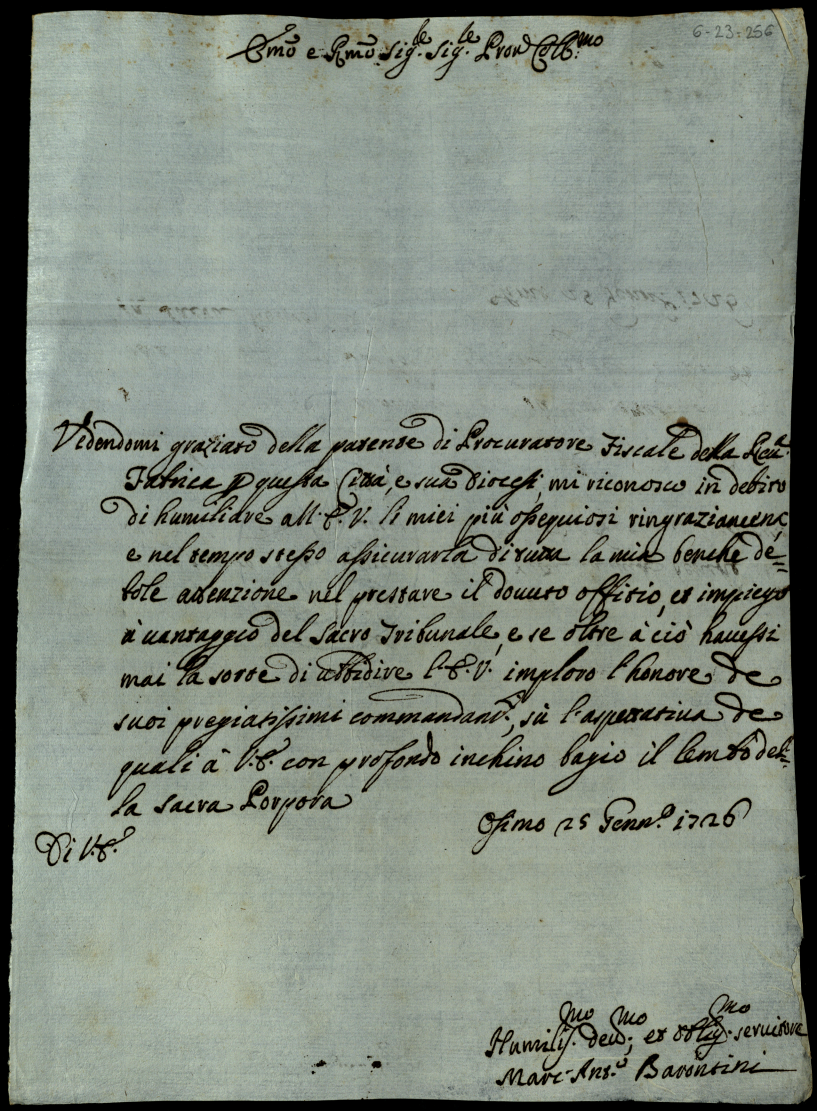 6-23-256
Emo e Rmo Sig.le Sig.le Pron Coll.mo
Videndomi graziato della patente di Procuratore Fiscale della Reu.a
Fabrica p questa Città, e sua Diocesi, mi riconosco in debito
di humiliare all'E.V. li miei più ossequiosi ringraziamenti,
e nel tempo stesso assicurarla di tutta la mia benche de=
bole attenzione nel prestare il douuto offitio, et impiego
à uantaggio del Sacro Tribunale, e se oltre à ciò hauessi
mai la sorte di ubbidire l'E.V. imploro l'honore de
suoi pregiatissimi commandam.ti, sù l'aspettatiua de
quali à V.E. con profondo inchino bagio il lembo del=
la sacra Porpora
Osimo 25 Genn.o 1726
Di V.E.
Humiliss.mo deu.mo, et oblig.mo seruitore
Marc-Ant.o Barontini